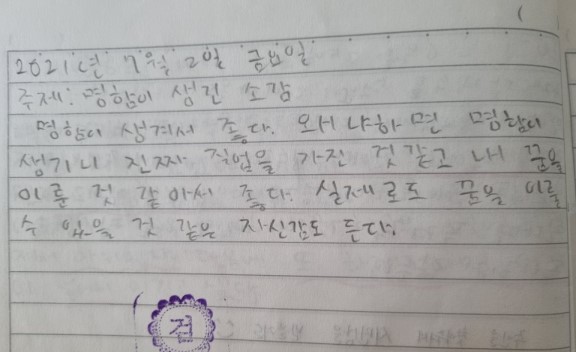 2021년 7월 2일 금요일
주제: 명함이 생긴 소감
명함이 생겨서 좋다. 왜냐하면 명함이
생기니 진짜 직업을 가진 것같고 내 꿈을
이룬 것 같아서 좋다. 실제로도 꿈을 이룰
수 있을 것 같은 자신감도 든다.
검